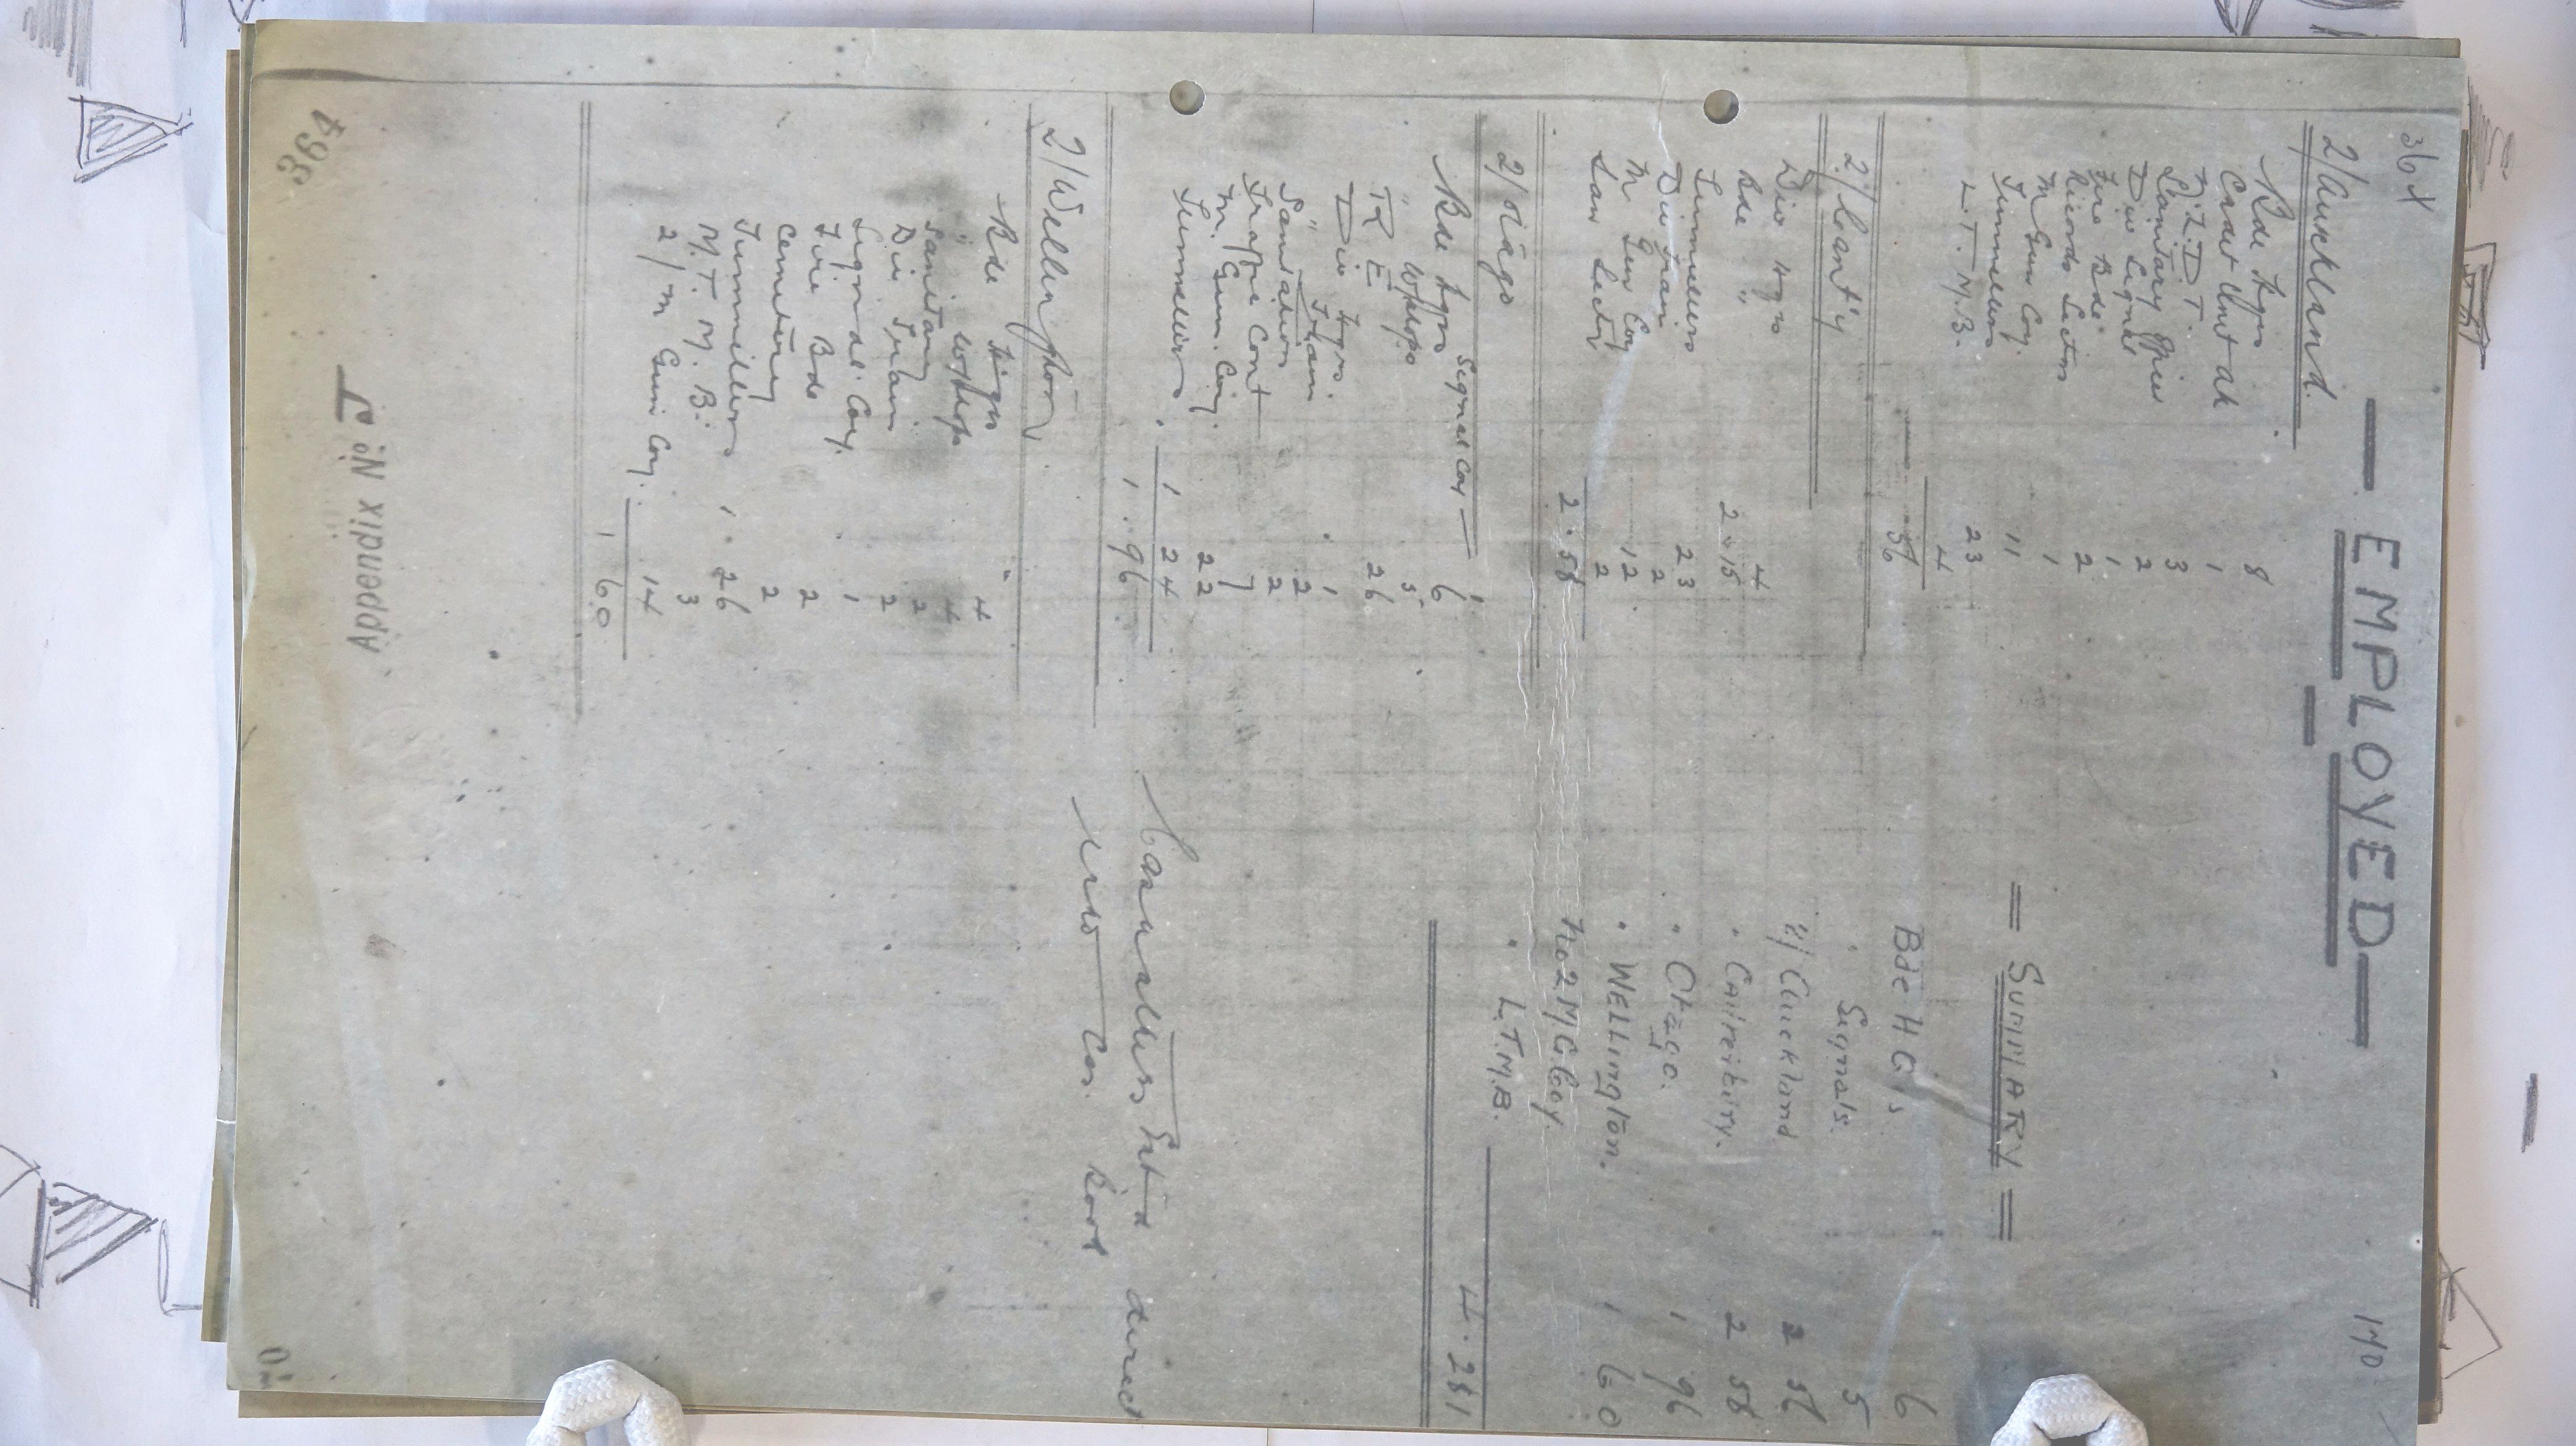 364
140
— EMPLOYED —
2/Auckland.
Bde Hqrs 8
1
N.Z.D.T. 3
Sanitary 2
Div Signal 1
Fire Bde 2
Records Section 1
M Gun Coy. 11
Tunnellers 23
L.T.M.B. 4
56
2/Canty
Div Hqrs 4
Bde " 2 . 15
Tunnellers 23
Div Train 2
M Gun Coy 12
San Secty 2
2 . 58
2/Otago
Signal Coy —
Bde Hqrs 6
" Wkshops 5
R E 26
Div Hqrs. 1
" Train 2
Sanitation 2
Traffic Cont 7
M. Gun. Coy. 22
Tunnellers. 1 24
1 . 96
2/Wellington
Bde Hqrs 4
" Wkshops 4
Sanitary 2
Div Train 2
Signal Coy. 1
Fire Bde 2
Cemetery 2
Tunnellers 1 . 26
M.T.M.B. 3
2/M Gun Coy. 14
1 60
= SUMMARY =
Bde H Q's 6
" Signals. 5
2/ Auckland 2 56
" Canterbury. 2 58
" Otago. 1 96
" WELLington. 1 60
No 2 M.G. Coy.
" L.T.M.B.
4 . 281
Casualties Ent'd direct
into Cas. Book
Appendix No. J
364